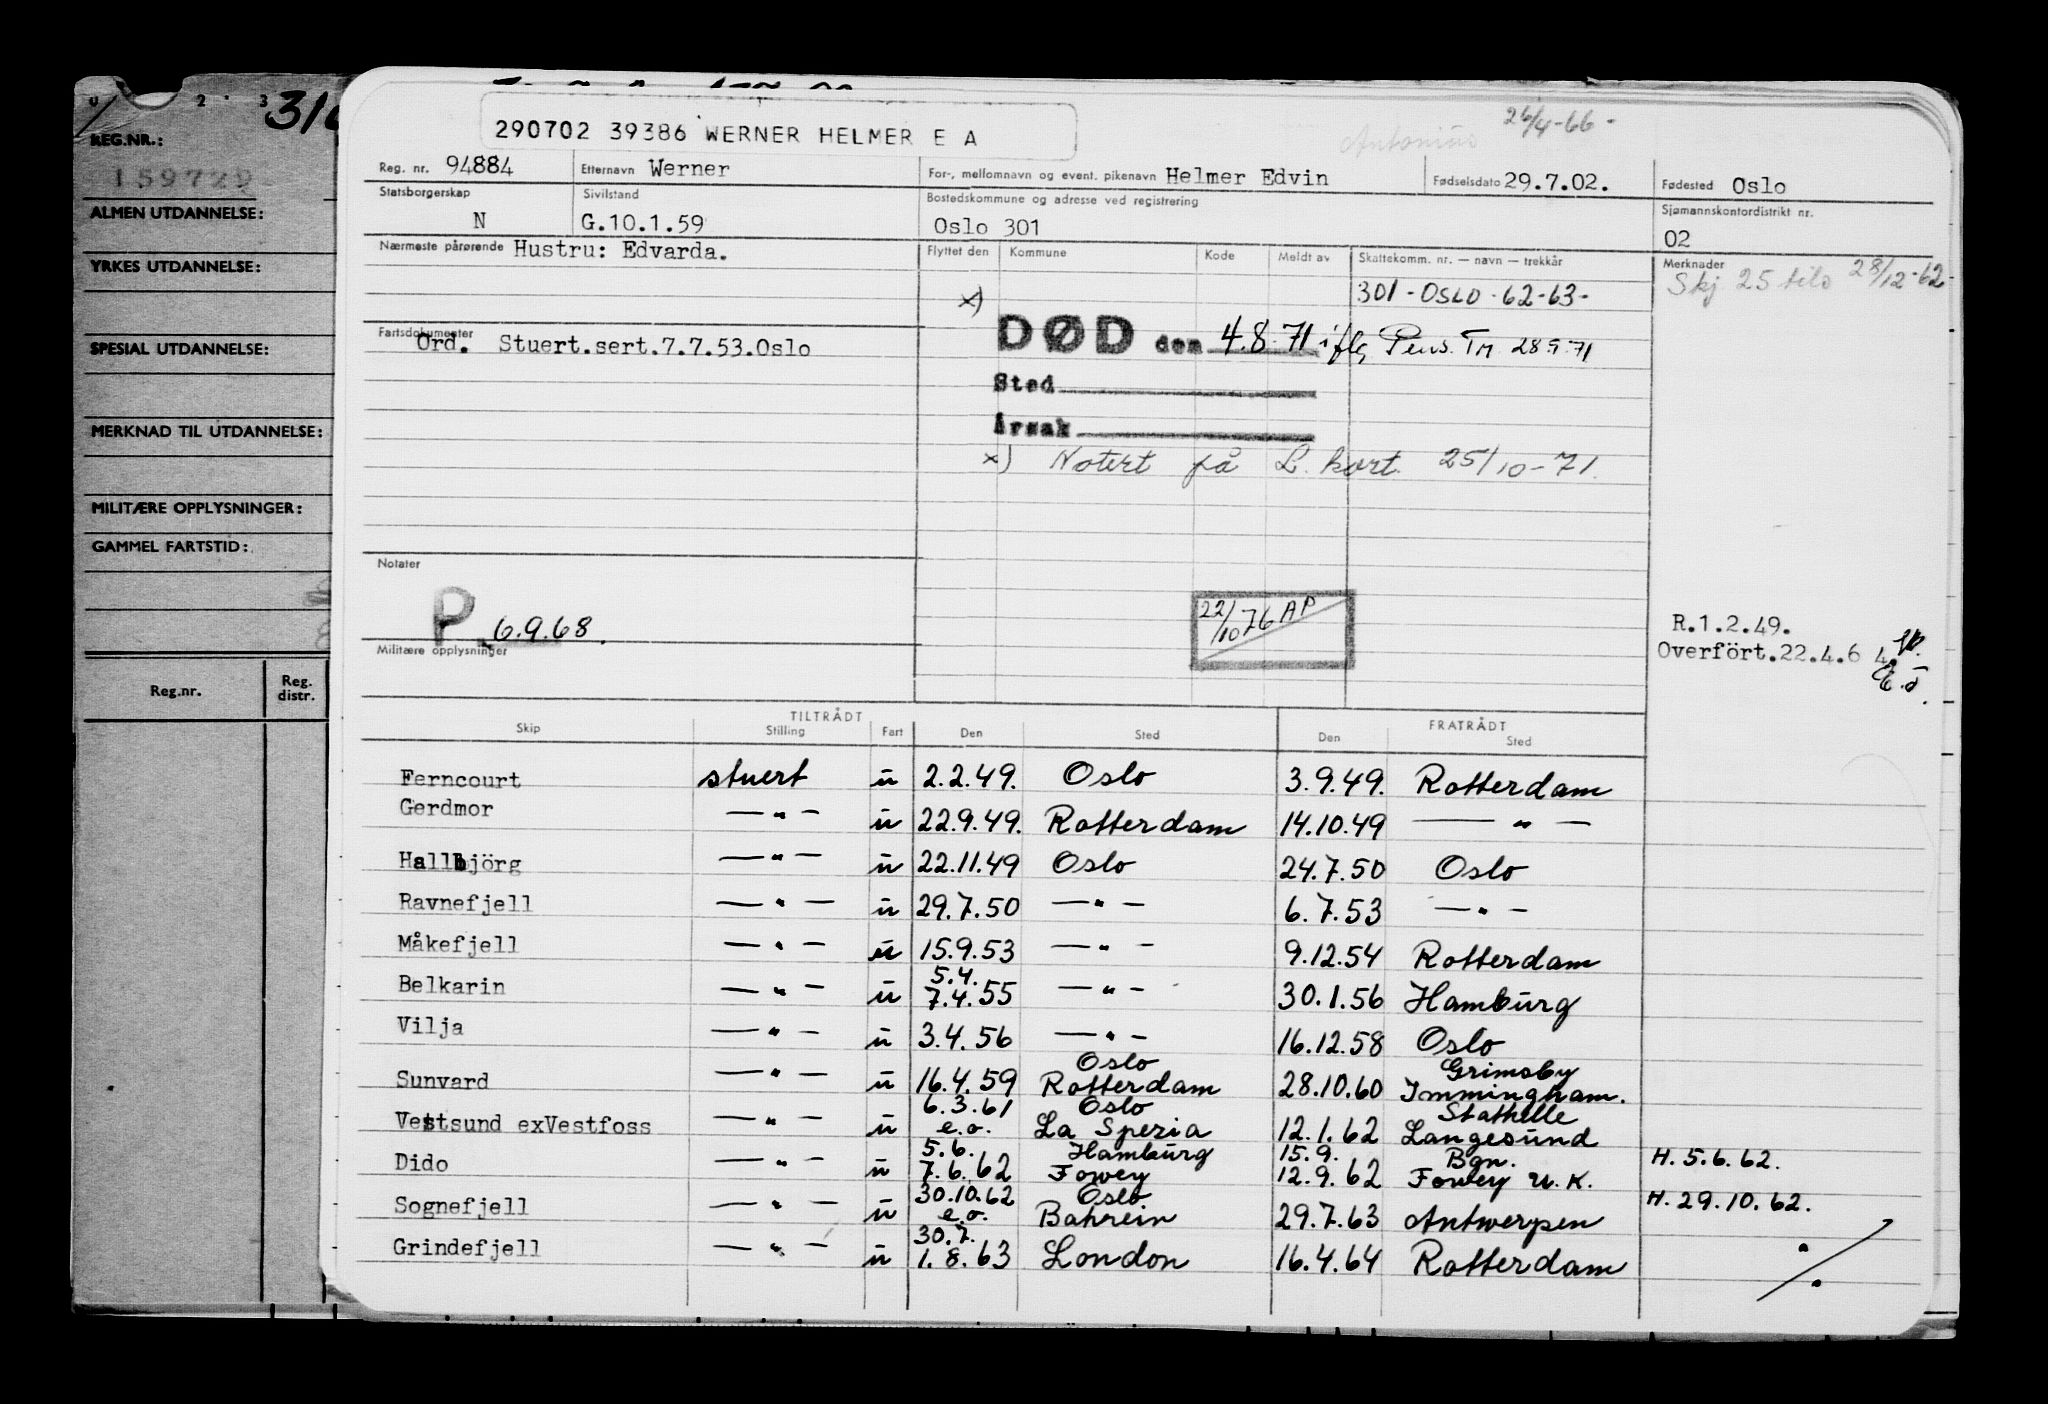 0 2 3 310
REG.NR.:
159729
ALMEN UTDANNELSE:
YRKES UTDANNELSE:
SPESIAL UTDANNELSE:
MERKNAD TIL UTDANNELSE:
MILITÆRE OPPLYSNINGER:
GAMMEL FARTSTID:
Reg.nr. Reg. distr.
290702 39386 WERNER HELMER E A
Antonius 26/4-66-
Reg. nr. 94884 Etternavn Werner For-, mellomnavn og event. pikenavn Helmer Edvin Fødselsdato 29.7.02. Fødested Oslo
Statsborgerskap Sivilstand Bostedskommune og adresse ved registrering Sjømannskontordistrikt nr.
N G.10.1.59 Oslo 301 02
Nærmeste pårørende Hustru: Edvarda. Flyttet den Kommune Kode Meldt av Skattekomm. nr. — navn — trekkår Merknader
301-OSLO-62-63- Skj 25 tilo 28/12-62
x)
Fartsdokumenter
Ord. Stuert.sert.7.7.53.Oslo
DØD den 4.8.71 iflg Pens. Tr. 28.9.71
Sted
Årsak
x) Notert på L. kort. 25/10-71.
Notater
P 6.9.68.
22/10 76 AP
R.1.2.49.
Overfört.22.4.6 4.
E.J.
Militære opplysninger
TILTRÅDT FRATRÅDT
Skip Stilling Fart Den Sted Den Sted
Ferncourt stuert u 2.2.49. Oslo 3.9.49. Rotterdam
Gerdmor —"— u 22.9.49. Rotterdam 14.10.49 —"—
Hallbjörg —"— u 22.11.49 Oslo 24.7.50 Oslo
Ravnefjell —"— u 29.7.50 —"— 6.7.53 —"—
Måkefjell —"— u 15.9.53 —"— 9.12.54 Rotterdam
5.4.
Belkarin —"— u 7.4.55 —"— 30.1.56 Hamburg
Vilja —"— u 3.4.56 —"— 16.12.58 Oslo
Oslo Grimsby
Sunvard —"— u 16.4.59 Rotterdam 28.10.60 Immingham.
6.3.61 Oslo Stathelle
Vestsund exVestfoss —"— u e.o. La Spezia 12.1.62 Langesund
5.6. Hamburg 15.9. Bgn. H.5.6.62.
Dido —"— u 7.6.62 Fowey 12.9.62 Fowey U.K.
30.10.62 Oslo H.29.10.62.
Sognefjell —"— u e.o. Bahrein 29.7.63 Antwerpen
30.7.
Grindefjell —"— u 1.8.63 London 16.4.64 Rotterdam ./.